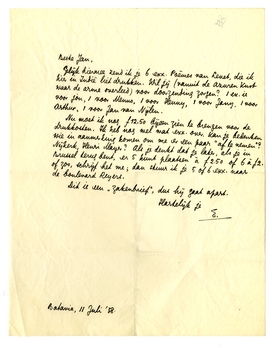 Beste Jan,
Gelijk hiermee zend ik je 6 exx. Poèmes van Lenet, die ik
hier in Indië liet drukken. Wil jij (vanuit de Azuren Kust
waar de arme overleed) voor doorzending zorgen? 1 ex. is
voor jou, 1 voor Menno, 1 voor Henny, 1 voor Jany, 1 voor
Arthur, 1 voor Jan van Nijlen.
Nu moet ik nog f 12.50 bijeen zien te brengen voor de
drukkosten. Ik heb nog wat exx. over. Kan je bedenken
wie in aanmerking komen om me er een paar "af te nemen"?
Nijkerk, Henri Mayer? Als je denkt dat je later, als je in
Brussel terug bent, er 5 kunt plaatsen à f 2.50 of 6 à f 2.
of zoo, schrijf het me; dan stuur ik je 5 of 6 exx. naar
de boulevard Reyers.
Dit is een "zakenbrief", dus hij gaat apart.
Hartelijk je
E.
Batavia, 11 Juli '38.